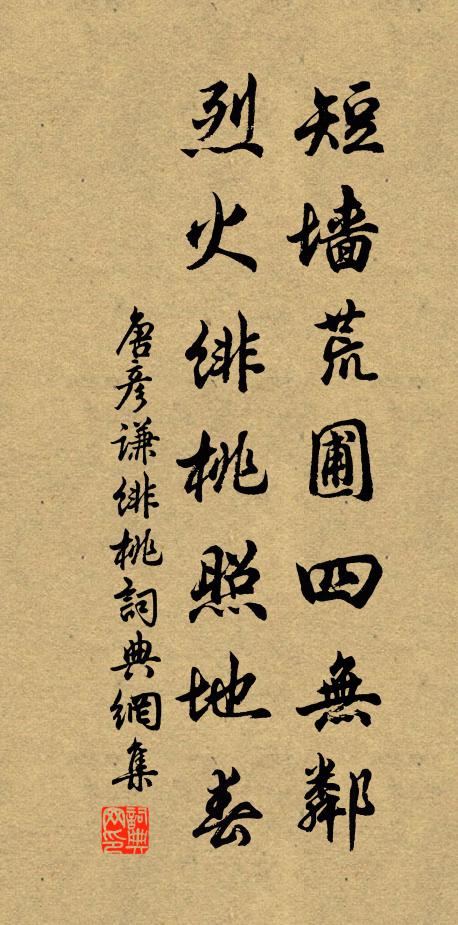 短墙荒圃四無鄰
烈火緋桃照地春
唐彥谦緋桃詞典網集
詞典网印